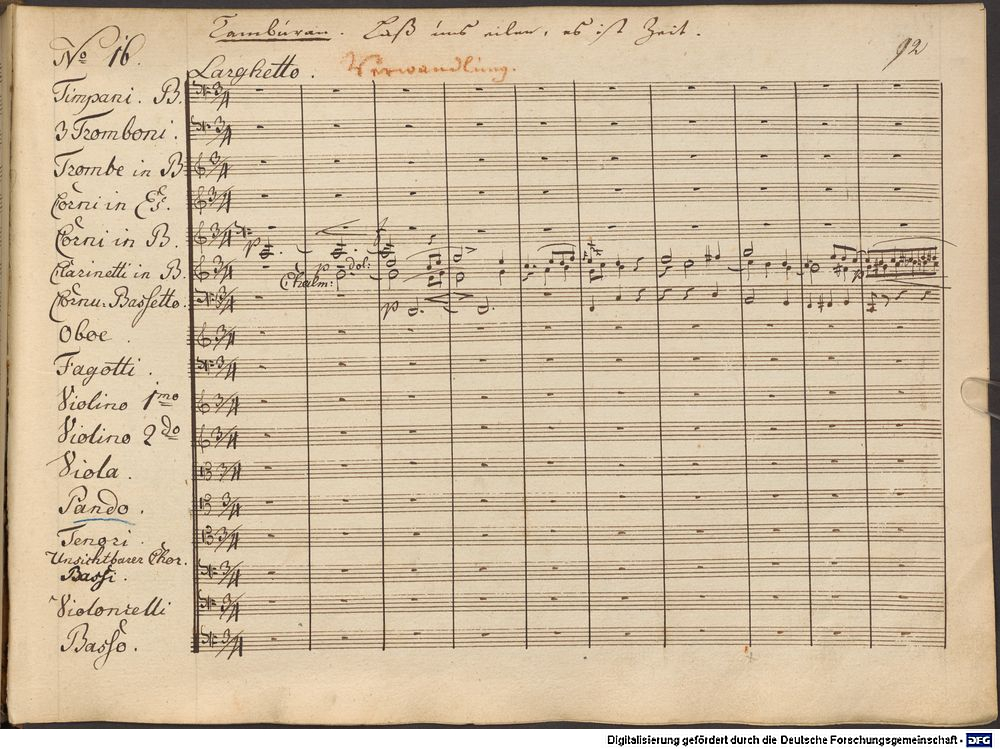 Tamburan. Laß uns eilen, es ist Zeit.
No 16.
92
Larghetto. Verwandlung.
Timpani. B.
3 Tromboni.
Trombe in B
Corni in Es.
Corni in B.
p
Clarinetti in B.
Chalm:
p dol:
Cornu: Bassetto.
p
Oboe.
Fagotti.
Violino 1mo
Violino 2do
Viola.
Pando.
Tenori.
Unsichtbarer Chor.
Bassi.
Violoncelli
Basso.
Digitalisierung gefördert durch die Deutsche Forschungsgemeinschaft - DFG